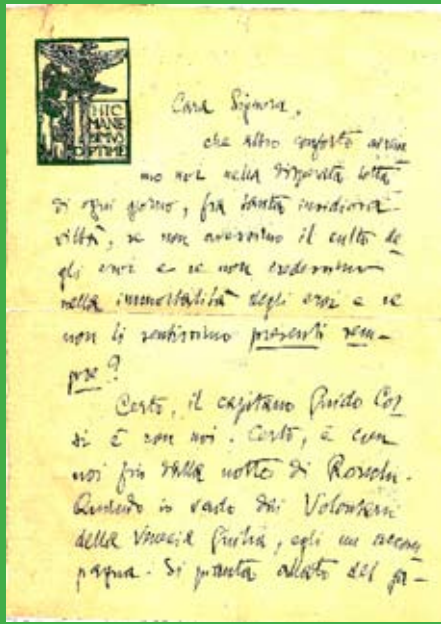 HIC
MANE
BIMVS
OPTIME
Cara Signora,
che altro conforto avrem
mo noi nella disperata lotta
di ogni giorno, fra tanta insidiosa
viltà, se non avessimo il culto de
gli eroi e se non credessimo
nella immortalità degli eroi e se
non li sentissimo presenti sem-
pre?
Certo, il capitano Guido Cor
si è con noi. Certo, è con
noi fin dalla notte di Ronchi.
Quando io vado dai Volontari
della Venezia Giulia, egli mi accom
pagna. Si pianta allato del